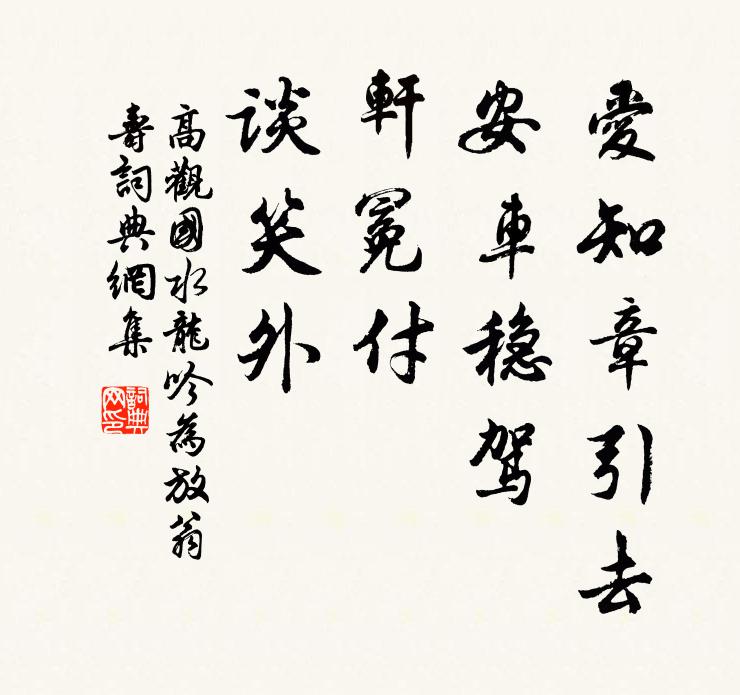 愛知章引去
安車穏駕
軒冕付
談笑外
高觀國水龍吟為放翁
壽詞典網集
詞典
网印